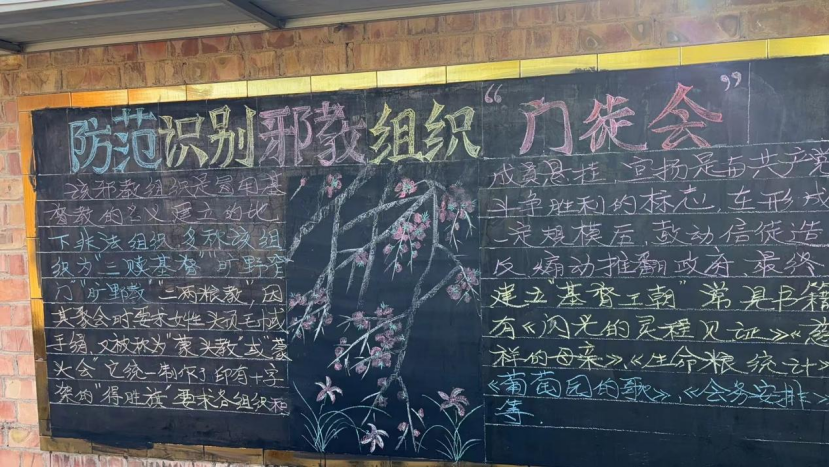 防范识别邪教组织“门徒会”
该邪教组织是冒用基
督教的名义建立的地
下非法组织,多称该组
织为“三赎基督”“旷野窄
门”“旷野教”“二两粮教”,因
其聚会时要求女性头顶毛巾或
手绢,又被称为“蒙头教”或“蒙
头会”它统一制作了印有十字
架的“得胜旗”要求各组织在
成员悬挂,宣扬是与共产党
斗争胜利的标志,在形成
一定规模后,鼓动信徒造
反,煽动推翻政府,最终
建立“基督王朝”常见书籍
有《闪光的灵程见证》《慈
祥的母亲》、《生命粮统计》
《葡萄园的歌》、《会务安排》
等.